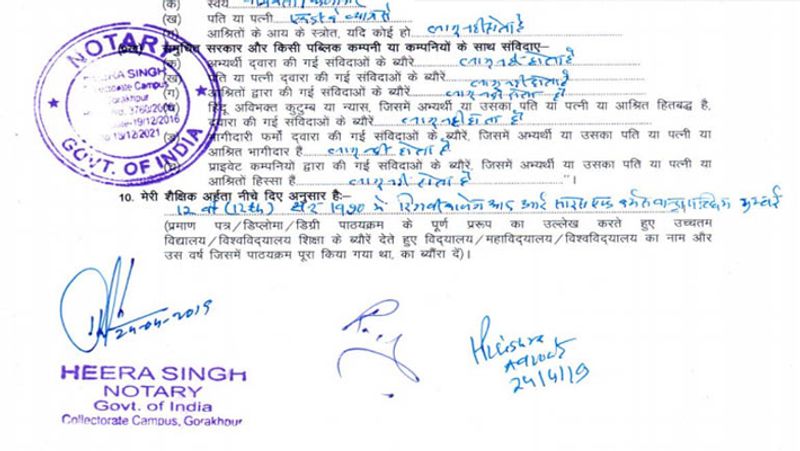 (क) स्वयं
(ख) पति या पत्नी
आश्रितों के आय के स्त्रोत, यदि कोई हो लागू नही होता है
समुचित सरकार और किसी पब्लिक कम्पनी या कम्पनियों के साथ संविदाए–
(क) अभ्यर्थी द्वारा की गई संविदाओं के ब्यौरे लागू नही होता है
पति या पत्नी द्वारा की गई संविदाओं के ब्यौरे लागू नही होता है
(ग) आश्रितों द्वारा की गई संविदाओं के ब्यौरे लागू नही होता है
हिंदू अविभक्त कुटुम्ब या न्यास, जिसमें अभ्यर्थी या उसका पति या पत्नी या आश्रित हितबद्ध है,
द्वारा की गई संविदाओं के ब्यौरे लागू नही होता है
भागीदारी फर्मो द्वारा की गई संविदाओं के ब्यौरे, जिसमें अभ्यर्थी या उसका पति या पत्नी या
आश्रित भागीदार है लागू नही होता है
प्राइवेट कम्पनियों द्वारा की गई संविदाओं के ब्यौरे, जिसमें अभ्यर्थी या उसका पति या पत्नी या
आश्रितों हिस्सा है लागू नही होता है "।
10. मेरी शैक्षिक अर्हता नीचे दिए अनुसार है:–
12 वी (12th) सन 1990 में
(प्रमाण पत्र/डिप्लोमा/डिग्री पाठयक्रम के पूर्ण प्ररूप का उल्लेख करते हुए उच्चतम
विद्यालय/विश्वविद्यालय शिक्षा के ब्यौरें देते हुए विद्यालय/महाविद्यालय/विश्वविद्यालय का नाम और
उस वर्ष जिसमें पाठयक्रम पूरा किया गया था, का ब्यौंरा दें)।
NOTARY
HEERA SINGH
Collectorate Campus
Gorakhpur
No. 3760/200
19/12/2016
to 19/12/2021
GOVT. OF INDIA
24-04-2019
HEERA SINGH
NOTARY
Govt. of India
Collectorate Campus, Gorakhpur
24/4/19